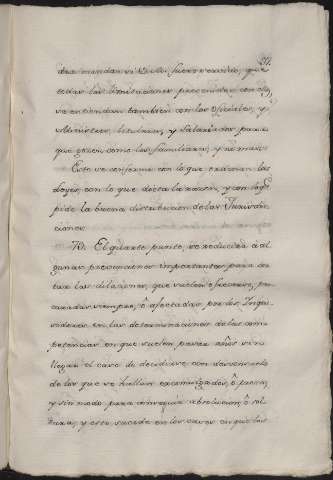 dra mandar si V.M. fuere servido, que
todas las limitaciones propuestas con ellos
se entiendan tambien con los oficiales, y
Ministros, titulares, y Salariados para
que gozen como los familiares, y no mas.
Esto se conforma con lo que praticaron las
leyes, con lo que dicta la razon, y con lo q
pide la buena distribucion de las Jurisdic-
ciones.
70. El quarto punto, se reducirà à al
gunas prevenciones importantes para evi
tar las dilaciones, que suelen ofrecerse, pro
curadas siempre, ò afectadas por los Inqui
sidores en las determinaciones de las com
petencias en que suelen pasar años sin
llegar el caso de decidirse con desconsuelo
de los que se hallan excomulgados, ò presos,
y sin modo para conseguir absolucion, ò sol
tura, y esto sucede en los casos en que los